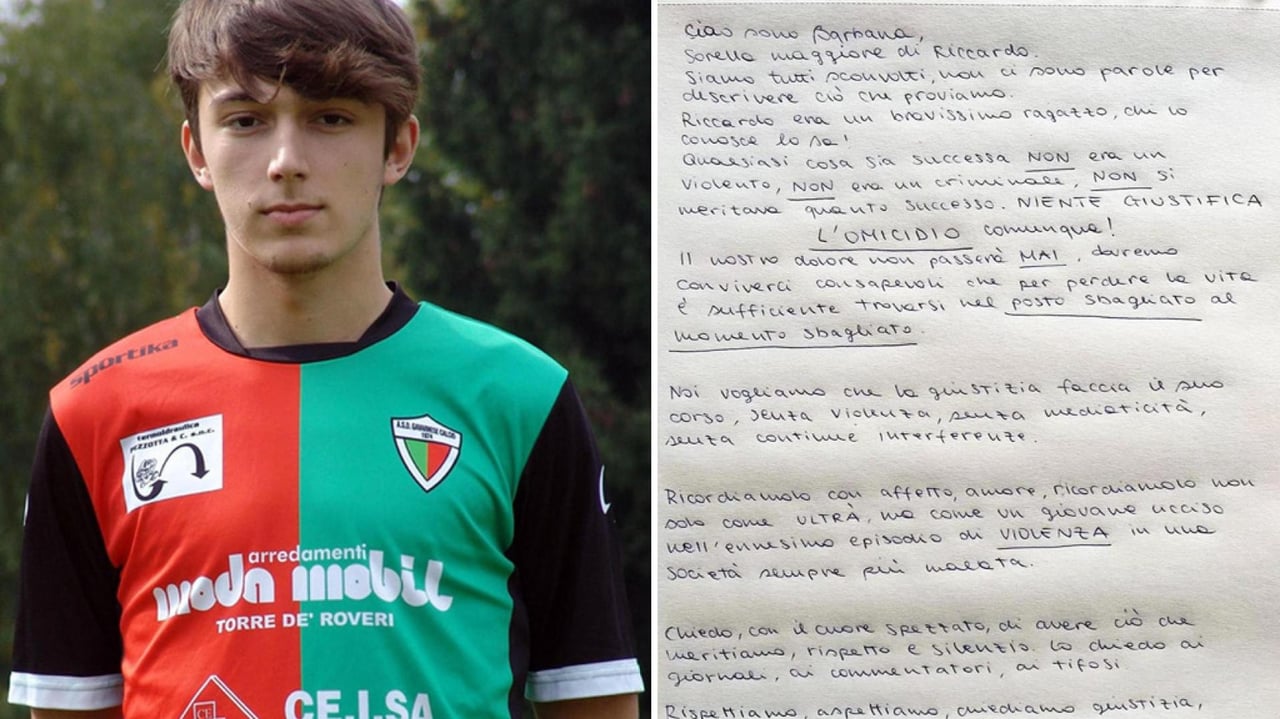 sportika
termoidraulica
PEZZOTTA & C. s.n.c.
A.S.D. GAVARNESE CALCIO
1974
arredamenti
moda mobil
TORRE DE' ROVERI
CE.I.SA
Ciao sono Barbara,
Sorella maggiore di Riccardo.
Siamo tutti sconvolti, non ci sono parole per
descrivere ciò che proviamo.
Riccardo era un bravissimo ragazzo, chi lo
conosce lo sa!
Qualsiasi cosa sia successa NON era un
violento, NON era un criminale, NON si
meritava quanto successo. NIENTE GIUSTIFICA
L'OMICIDIO comunque!
Il nostro dolore non passerà MAI, dovremo
conviverci consapevoli che per perdere la vita
è sufficiente trovarsi nel posto sbagliato al
momento sbagliato.
Noi vogliamo che la giustizia faccia il suo
corso, senza violenza, senza mediaticità,
senza continue interferenze.
Ricordiamolo con affetto, amore, ricordiamolo non
solo come ULTRÀ, ma come un giovane ucciso
nell'ennesimo episodio di VIOLENZA in una
società sempre più malata.
Chiedo, con il cuore spezzato, di avere ciò che
meritiamo, rispetto e silenzio. Lo chiedo ai
giornali, ai commentatori, ai tifosi
Rispettiamo, aspettiamo, chiediamo giustizia,